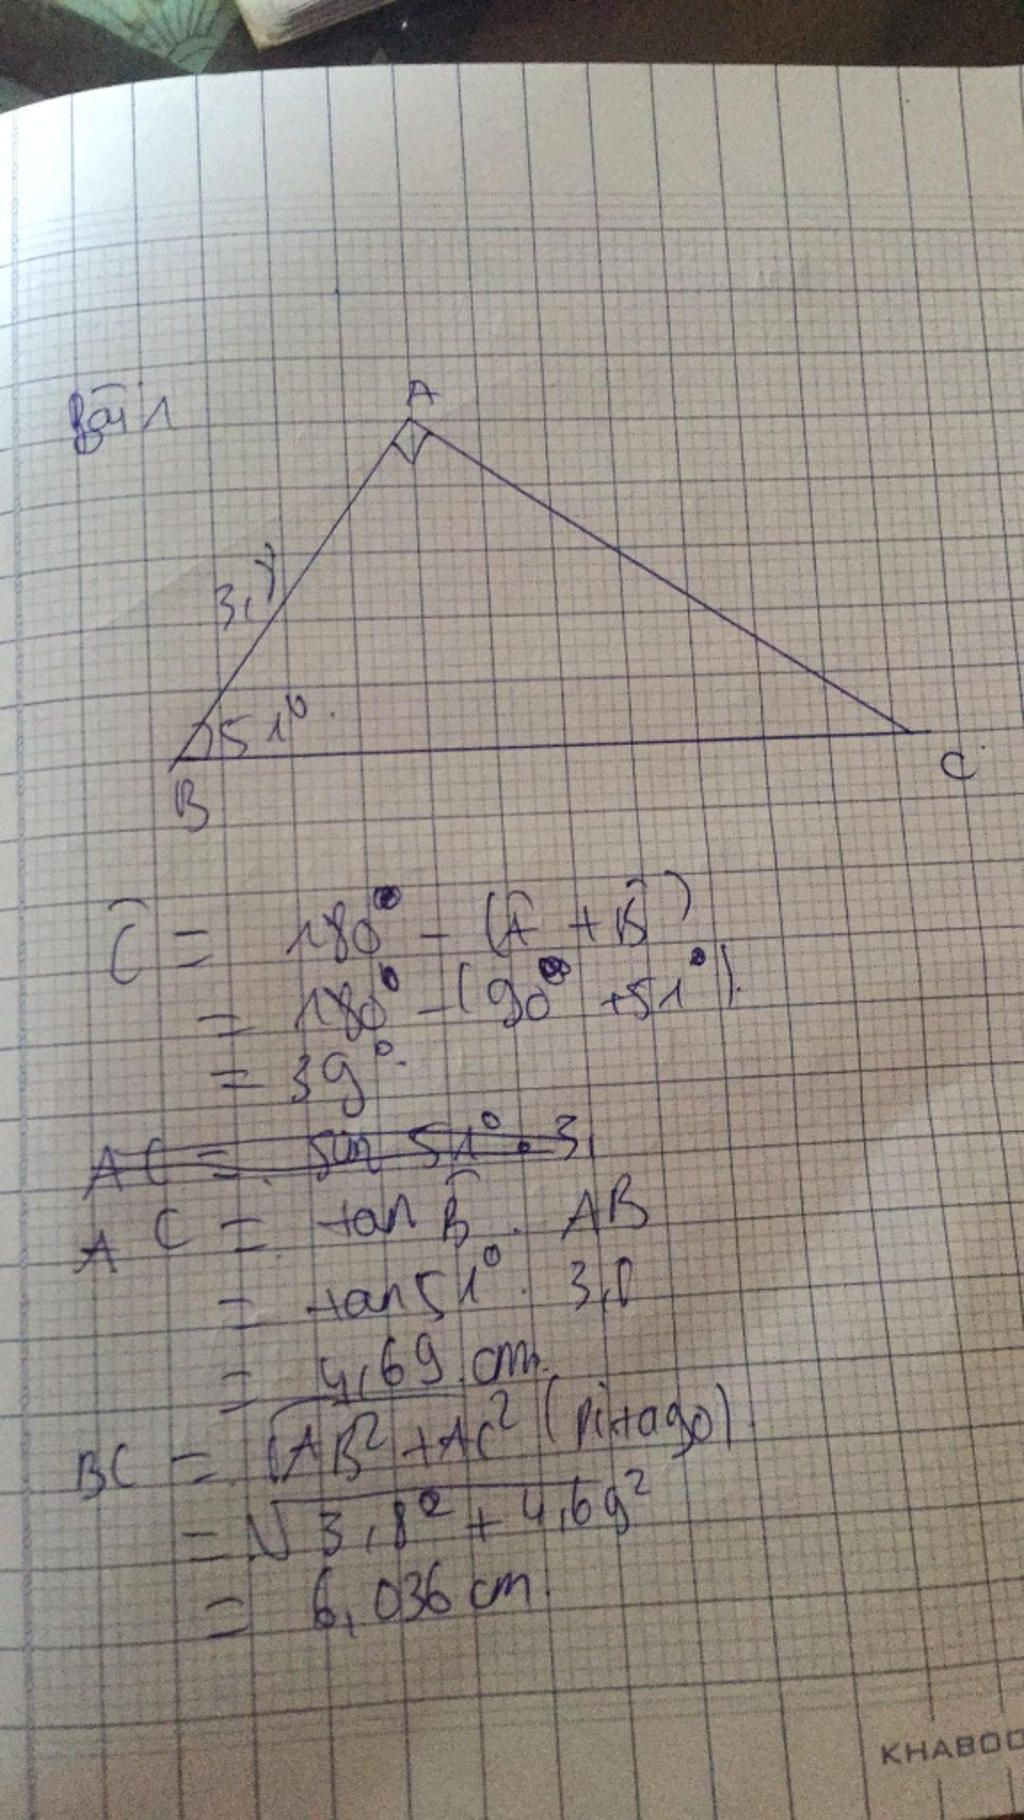 Bài 1
A
3,8
51°
B
C
Ĉ = 180° - (Â + B̂)
= 180° - (90° + 51°).
= 39°.
AC = sin 51° . 3,
AC = tan B̂ . AB
= tan 51° . 3,8
= 4,69 cm.
BC = √AB² + AC² (pitago).
= √3,8² + 4,69²
= 6,036 cm.
KHABOO